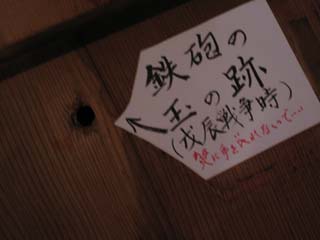 鉄砲の
玉の跡
(戊辰戦争時)
穴に手を入れないで…